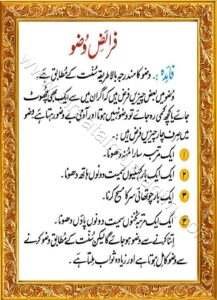 فرائضِ وُضو
فائدہ: ۔ وضو کا مندرجہ بالا طریقہ سُنّت کے مُطابق ہے۔
وضو میں بعض چیزیں فرض ہیں کہ اگر ان میں سے ایک بھی چھُوٹ
جائے یا کچھ بھی رہ جائے تو وضو نہیں ہوتا اور آدمی بے وضو رہتا ہے وضو
میں صرف چار چیزیں فرض ہیں:۔
۱ ایک مرتبہ سارا مُنہ دھونا۔
۲ ایک ایک بار کہنیوں سمیت دونوں ہاتھ دھونا۔
۳ ایک بار چوتھائی سر کا مسح کرنا۔
۴ ایک ایک مرتبہ ٹخنوں سمیت دونوں پاؤں دھونا۔
اِتنا کرنے سے وضو ہو جائے گا لیکن سُنّت کے مطابق وضو کرنے
سے وضو کامل ہوتا ہے اور زیادہ ثواب ملتا ہے۔